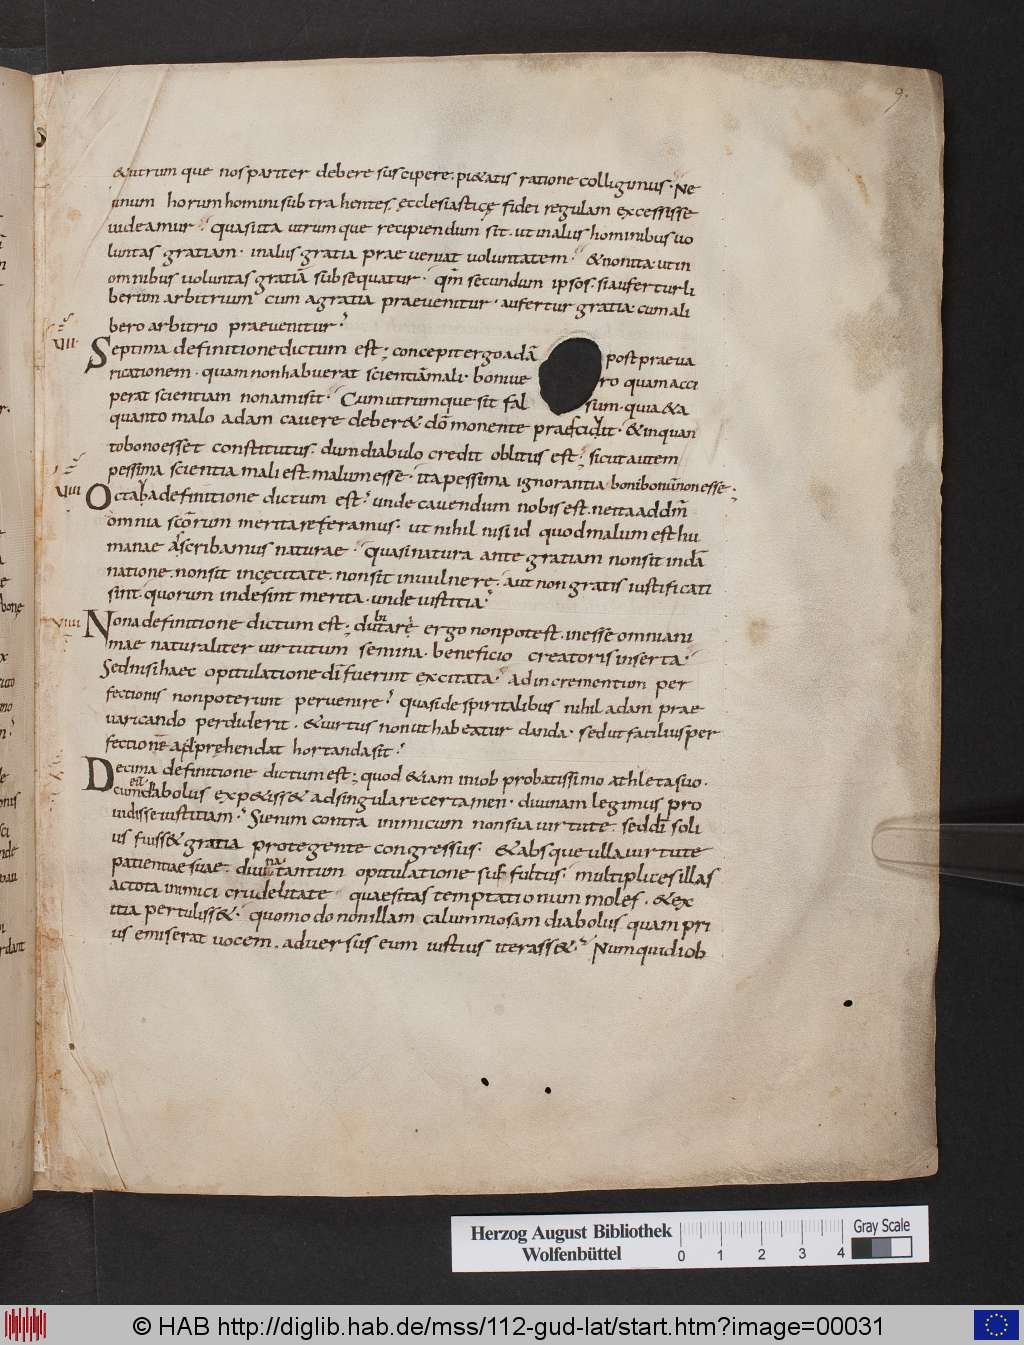 9.
&utrum que nos pariter debere suscipere; pi&atis ratione colligimus. Ne
unum horum homini subtrahentes ęcclesiasticę fidei regulam excessisse
uideamur. quasi ita utrumque recipiendum sit. ut in aliis hominibus uo
luntas gratiam. in aliis gratia praeueniat uoluntatem. & non ita ut in
omnibus uoluntas gratiā subsequatur. qm̄ secundum ipsos. si aufertur li
berum arbitrium cum a gratia praeuenitur. aufertur gratia cum a li
bero arbitrio praeuenitur.
VII. Septima definitione dictum est; concepit ergo adā post praeua
ricationem. quam non habuerat scientiā mali. boni ue ro quam acci
perat scientiam non amisit. Cum utrumque sit fal sum. quia & a
quanto malo adam cauere deber& dō monente praescidit. & in quan
to bono esset constitutus. dum diabulo credit oblitus est; sicut autem
pessima scientia mali est. malum esse. ita pessima ignorantia boni bonū non esse;
VIII Octaba definitione dictum est. unde cauendum nobis est. ne ita ad dm̄
omnia scōrum merita referamus. ut nihil nisi id quod malum est hu
manae ascribamus naturae. quasi natura ante gratiam non sit in dā
natione. non sit in cęcitate. non sit in uulnere. aut non gratis iustificati
sint. quorum inde sint merita. unde iustitia.
VIIII Nona definitione dictum est; dubitare ergo non potest. inesse omni ani
mae naturaliter uirtutum semina. beneficio creatoris inserta.
Sed nisi haec opitulatione dī fuerint excitata. ad incrementum per
fectionis non poterunt peruenire. quasi de spiritalibus nihil adam prae
uaricando perdiderit. & uirtus non ut habeatur danda. sed ut facilius per
fectione adpręhendat hortanda sit.
Decima definitione dictum est; quod &iam in iob probatissimo athleta suo.
cum diabolus exp&iss& ad singulare certamen. diuinam legimus pro
uidisse iustitiam. Si enim contra inimicum non sua uirtute. sed dī soli
us fuiss& gratia protegente congressus. & absque ulla uirtute
patientiae suae. diuina tantum opitulatione suffultus. multiplices illas
ac tota inimici crudelitate quaesitas temptationum moles. & ex
itia pertuliss&. quomodo non illam calumniosam diabolus quam pri
us emiserat uocem. aduersus eum iustius iterass&. Numquid iob
Herzog August Bibliothek
Wolfenbüttel
0 1 2 3 4
Gray Scale
© HAB http://diglib.hab.de/mss/112-gud-lat/start.htm?image=00031